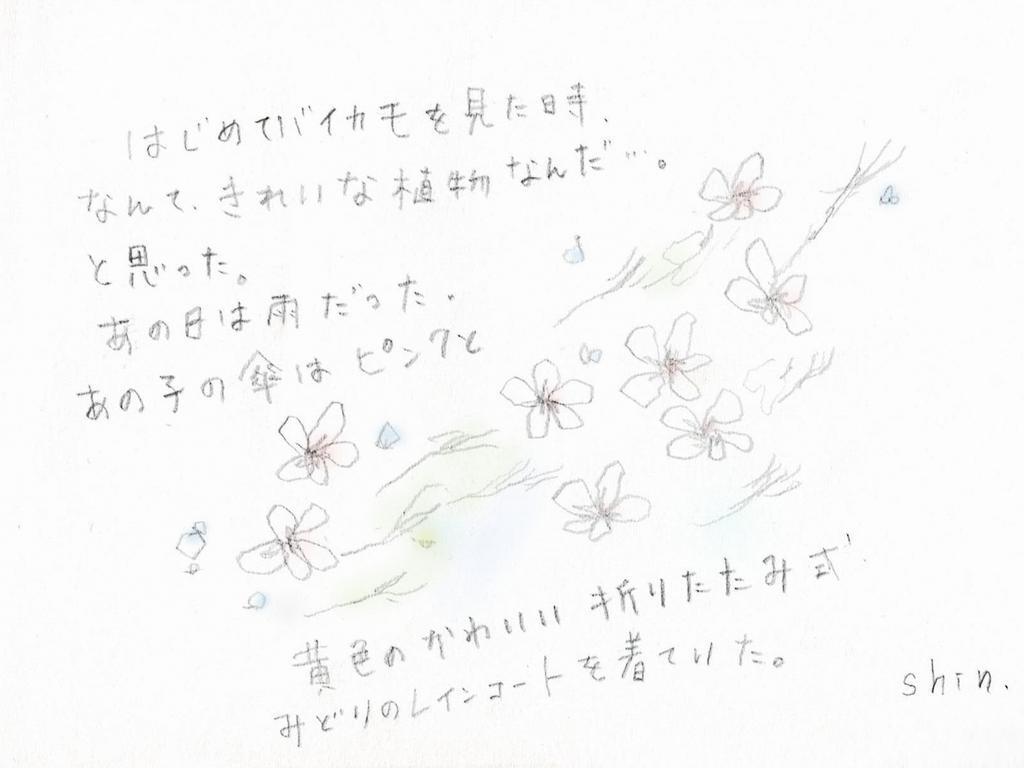 はじめてバイカモを見た時、
なんて、きれいな植物なんだ…。
と思った。
あの日は雨だった。
あの子の傘はピンクと
黄色のかわいい折りたたみ式
みどりのレインコートを着ていた。
shin.